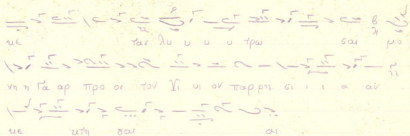 κε τας λυ υ υ υ τρω σαι μο
νη η Γα αρ προ ος τον Υι υι ον παρρη σι ι ι α αν
κε κτη σαι αι